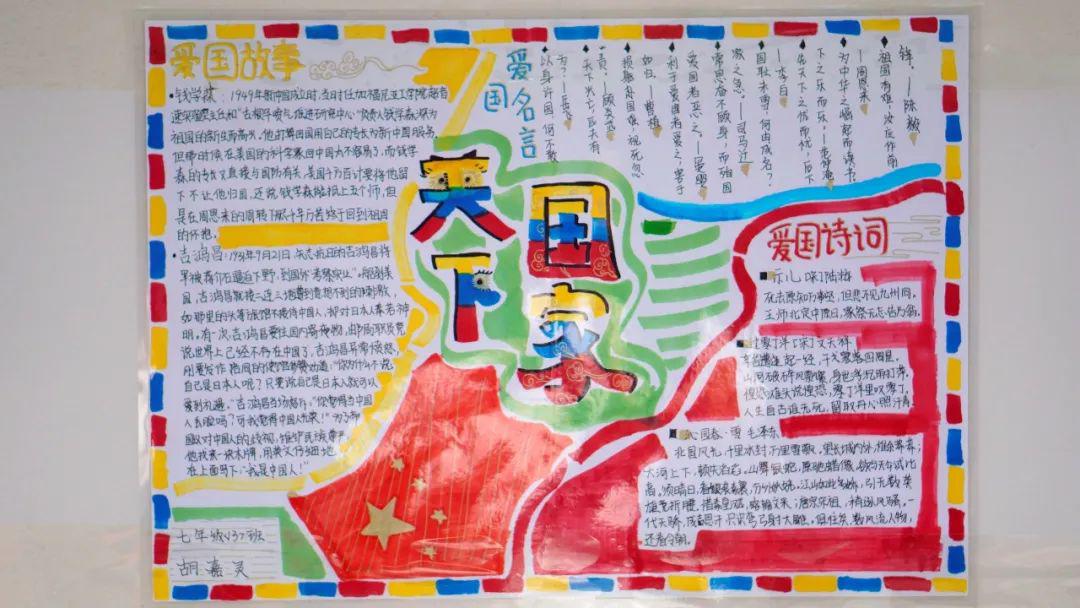 爱国故事
钱学森：1949年新中国成立时，当时任加福尼亚工学院超音
速实验室主任和“古根罕喷气推进研究中心”负责人钱学森，深为
祖国的新生而高兴。他打算回国用自己的专长为新中国服务，
但那时候在美国的科学家回中国太不容易了，而钱学
森的专长又直接与国防有关，美国千方百计要将他留
下不让他归国，还说钱学森能抵上五个师，但
是在周恩来的周转下
终于回到祖国
的怀抱。
吉鸿昌：1931年9月21日，矢志抗日的吉鸿昌将
军被蒋介石逼迫下野，到国外“考察实业”。船到美
国，吉鸿昌就接二连三地遭到意想不到的刺激，
如那里的头等旅馆不接待中国人，却对日本人奉若神
明，有一次，吉鸿昌要往国内寄
说世界上已经不存在中国了，吉鸿昌异常愤怒，
刚要发作
劝道：“你为什么不说
自己是日本人呢？只要说自己是日本人就可以
受到礼遇。”吉鸿昌当
“你觉得当中国
人丢脸吗？可我觉得当中国人光荣！”为
国民对中国人的歧视，维护民族尊严，
他找来一块木牌，用英文仔细地
在上面写下：“我是中国人！”
七年级
班
胡嘉灵
爱国名言
钱。——陈毅
祖国有难，汝应作前
——周恩来
为中华之崛起而读书。
下之乐而乐。——范仲淹
先天下之忧而忧，后天
——李白
国耻未雪，何由成名？
家之急。——司马迁
常思奋不顾身，而殉国
爱国者恶之。——晏婴
利于爱国者爱之，害于
如归。——曹植
捐躯赴国难，视死忽
责。——顾炎武
天下兴亡，匹夫有
为？——岳飞
以身许国，何不敢
天下
国家
爱国诗词
示儿 宋 陆游
死去原知万事空，但悲不见九州同。
王师北定中原日，家祭无忘告乃翁。
过零丁洋 宋 文天祥
辛苦遭逢起一经，干戈寥落四周星。
山河破碎风飘絮，身世浮沉雨打萍。
惶恐滩头说惶恐，零丁洋里叹零丁，
人生自古谁无死，留取丹心照汗青。
沁园春·雪 毛泽东
北国风光，千里冰封，万里雪飘。望长城内外，惟余莽莽；
大河上下，顿失滔滔。山舞银蛇，原驰蜡象，欲与天公试比
高。须晴日，看银装素裹，分外妖娆。江山如此多娇，引无数英
雄竞折腰。惜秦皇汉武，略输文采；唐宗宋祖，稍逊风骚。一
代天骄，成吉思汗，只识弯弓射大雕。俱往矣，数风流人物，
还看今朝。